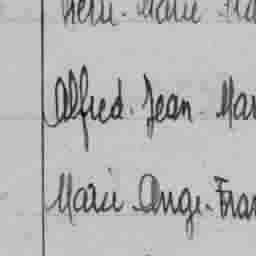 Marie Fra
Alfred. Jean. Mar
Marie Ange. Fran